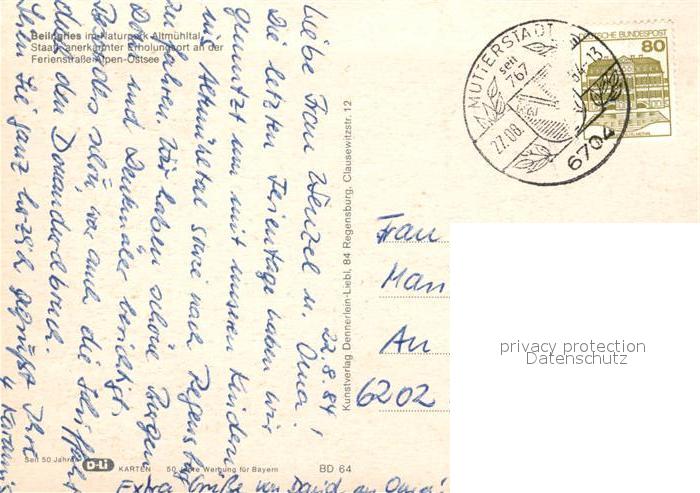 Beilngries im Naturpark Altmühltal
Staatl. anerkannter Erholungsort an der
Ferienstraße Alpen-Ostsee
22.8.84
Liebe Frau Wenzel u. Oma!
Die letzten Ferientage haben wir
genutzt um mit unseren Kindern
ins Altmühltal sowie nach Regensburg
zu fahren. Wir haben schöne Burgen
Dome und Denkmäler besichtigt.
Besonders schön war auch die Schiffahrt
durch den Donaudurchbruch.
Ihnen Sie ganz herzlich gegrüßt Ihre
4
Extra Grüße von David an Oma!
Seit 50 Jahren
D-Li
KARTEN
50 Jahre Werbung für Bayern
BD 64
Kunstverlag Dennerlein-Liebl, 84 Regensburg, Clausewitzstr. 12
MUTTERSTADT
seit
767
27.08.
84-13
6704
DEUTSCHE BUNDESPOST
80
Frau
Man
An
6202
privacy protection
Datenschutz